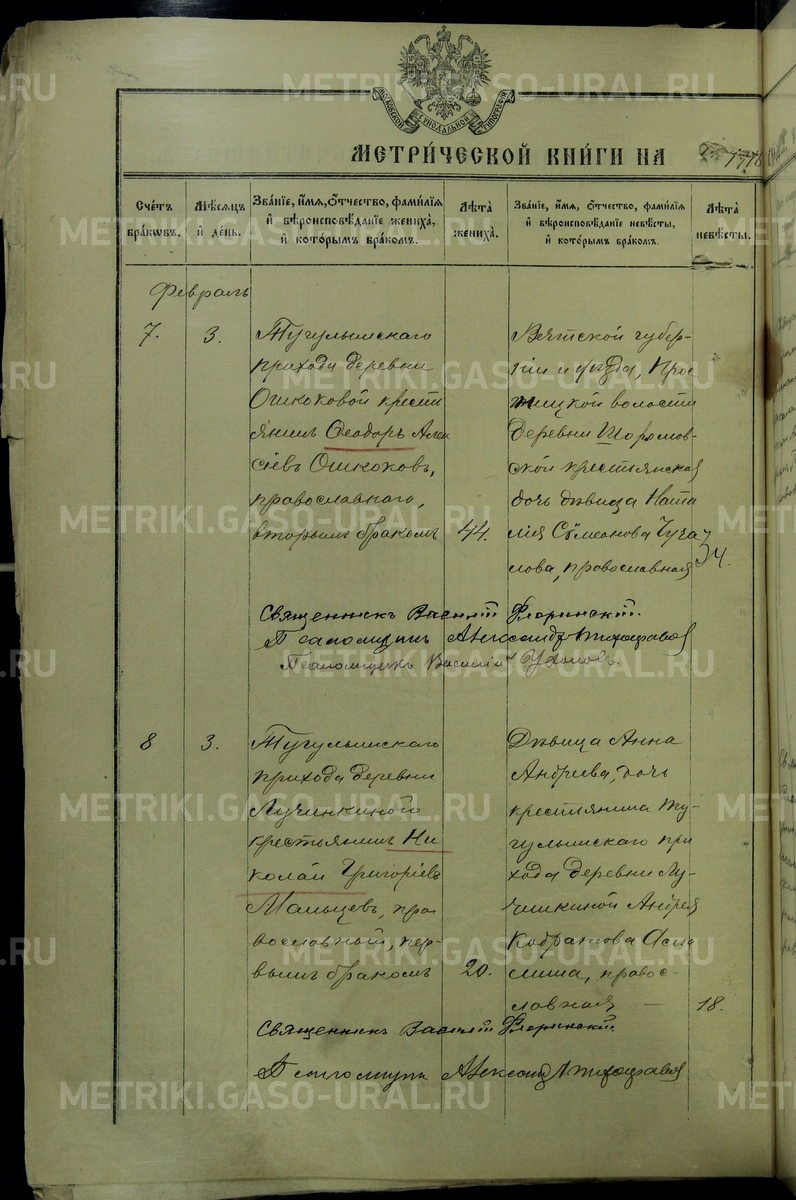 МОСКОВСКОЙ СѴНОДАЛЬНОЙ ТИПОГРАФІИ
МЕТРИ́ЧЕСКОЙ КНИ́ГИ НА
Сче́тъ бра́кѡвъ.
Мѣ́сяцъ и́ де́нь.
Зва́ніе, и́мя, о́тчество, фами́лїя и́ вѣроисповѣ́даніе жениха̀, и́ кото́рымъ бра́комъ.
Лѣ́та̀ жениха̀.
Зва́ніе, и́мя, о́тчество, фами́лїя и́ вѣроисповѣ́даніе невѣ́сты, и́ кото́рымъ бра́комъ.
Лѣ́та̀ невѣ́сты.
Февраль
7.
3.
Тугулымскаго
прихода деревни
Ошкоковой крестъ
янинъ Ѳеодоръ Алек
сіевъ Ошкоковъ,
православнаго,
вторымъ бракомъ
44.
Вятской губер-
ніи и уѣзда,
волости
деревни
ской крестьянская
дочь дѣвица Ната
лія Сѵмеонова
православная
34.
Священникъ Василій Флоринскій.
Псаломщикъ Александръ
Псаломщикъ Василій
8
3.
Тугулымскаго
прихода деревни
Лучинкиной
крестьянинъ Ни
колай Григоріевъ
Мальцевъ, пра
вославный, пер-
вымъ бракомъ
20.
Дѣвица Анна
Андреева, дочь
крестьянина Ту-
гулымскаго при
хода деревни Лу-
чинкиной Андрея
Кодратова
правос-
лавная
18.
Священникъ Василій Флоринскій.
Псаломщикъ Александръ
METRIKI.GASO-URAL.RU